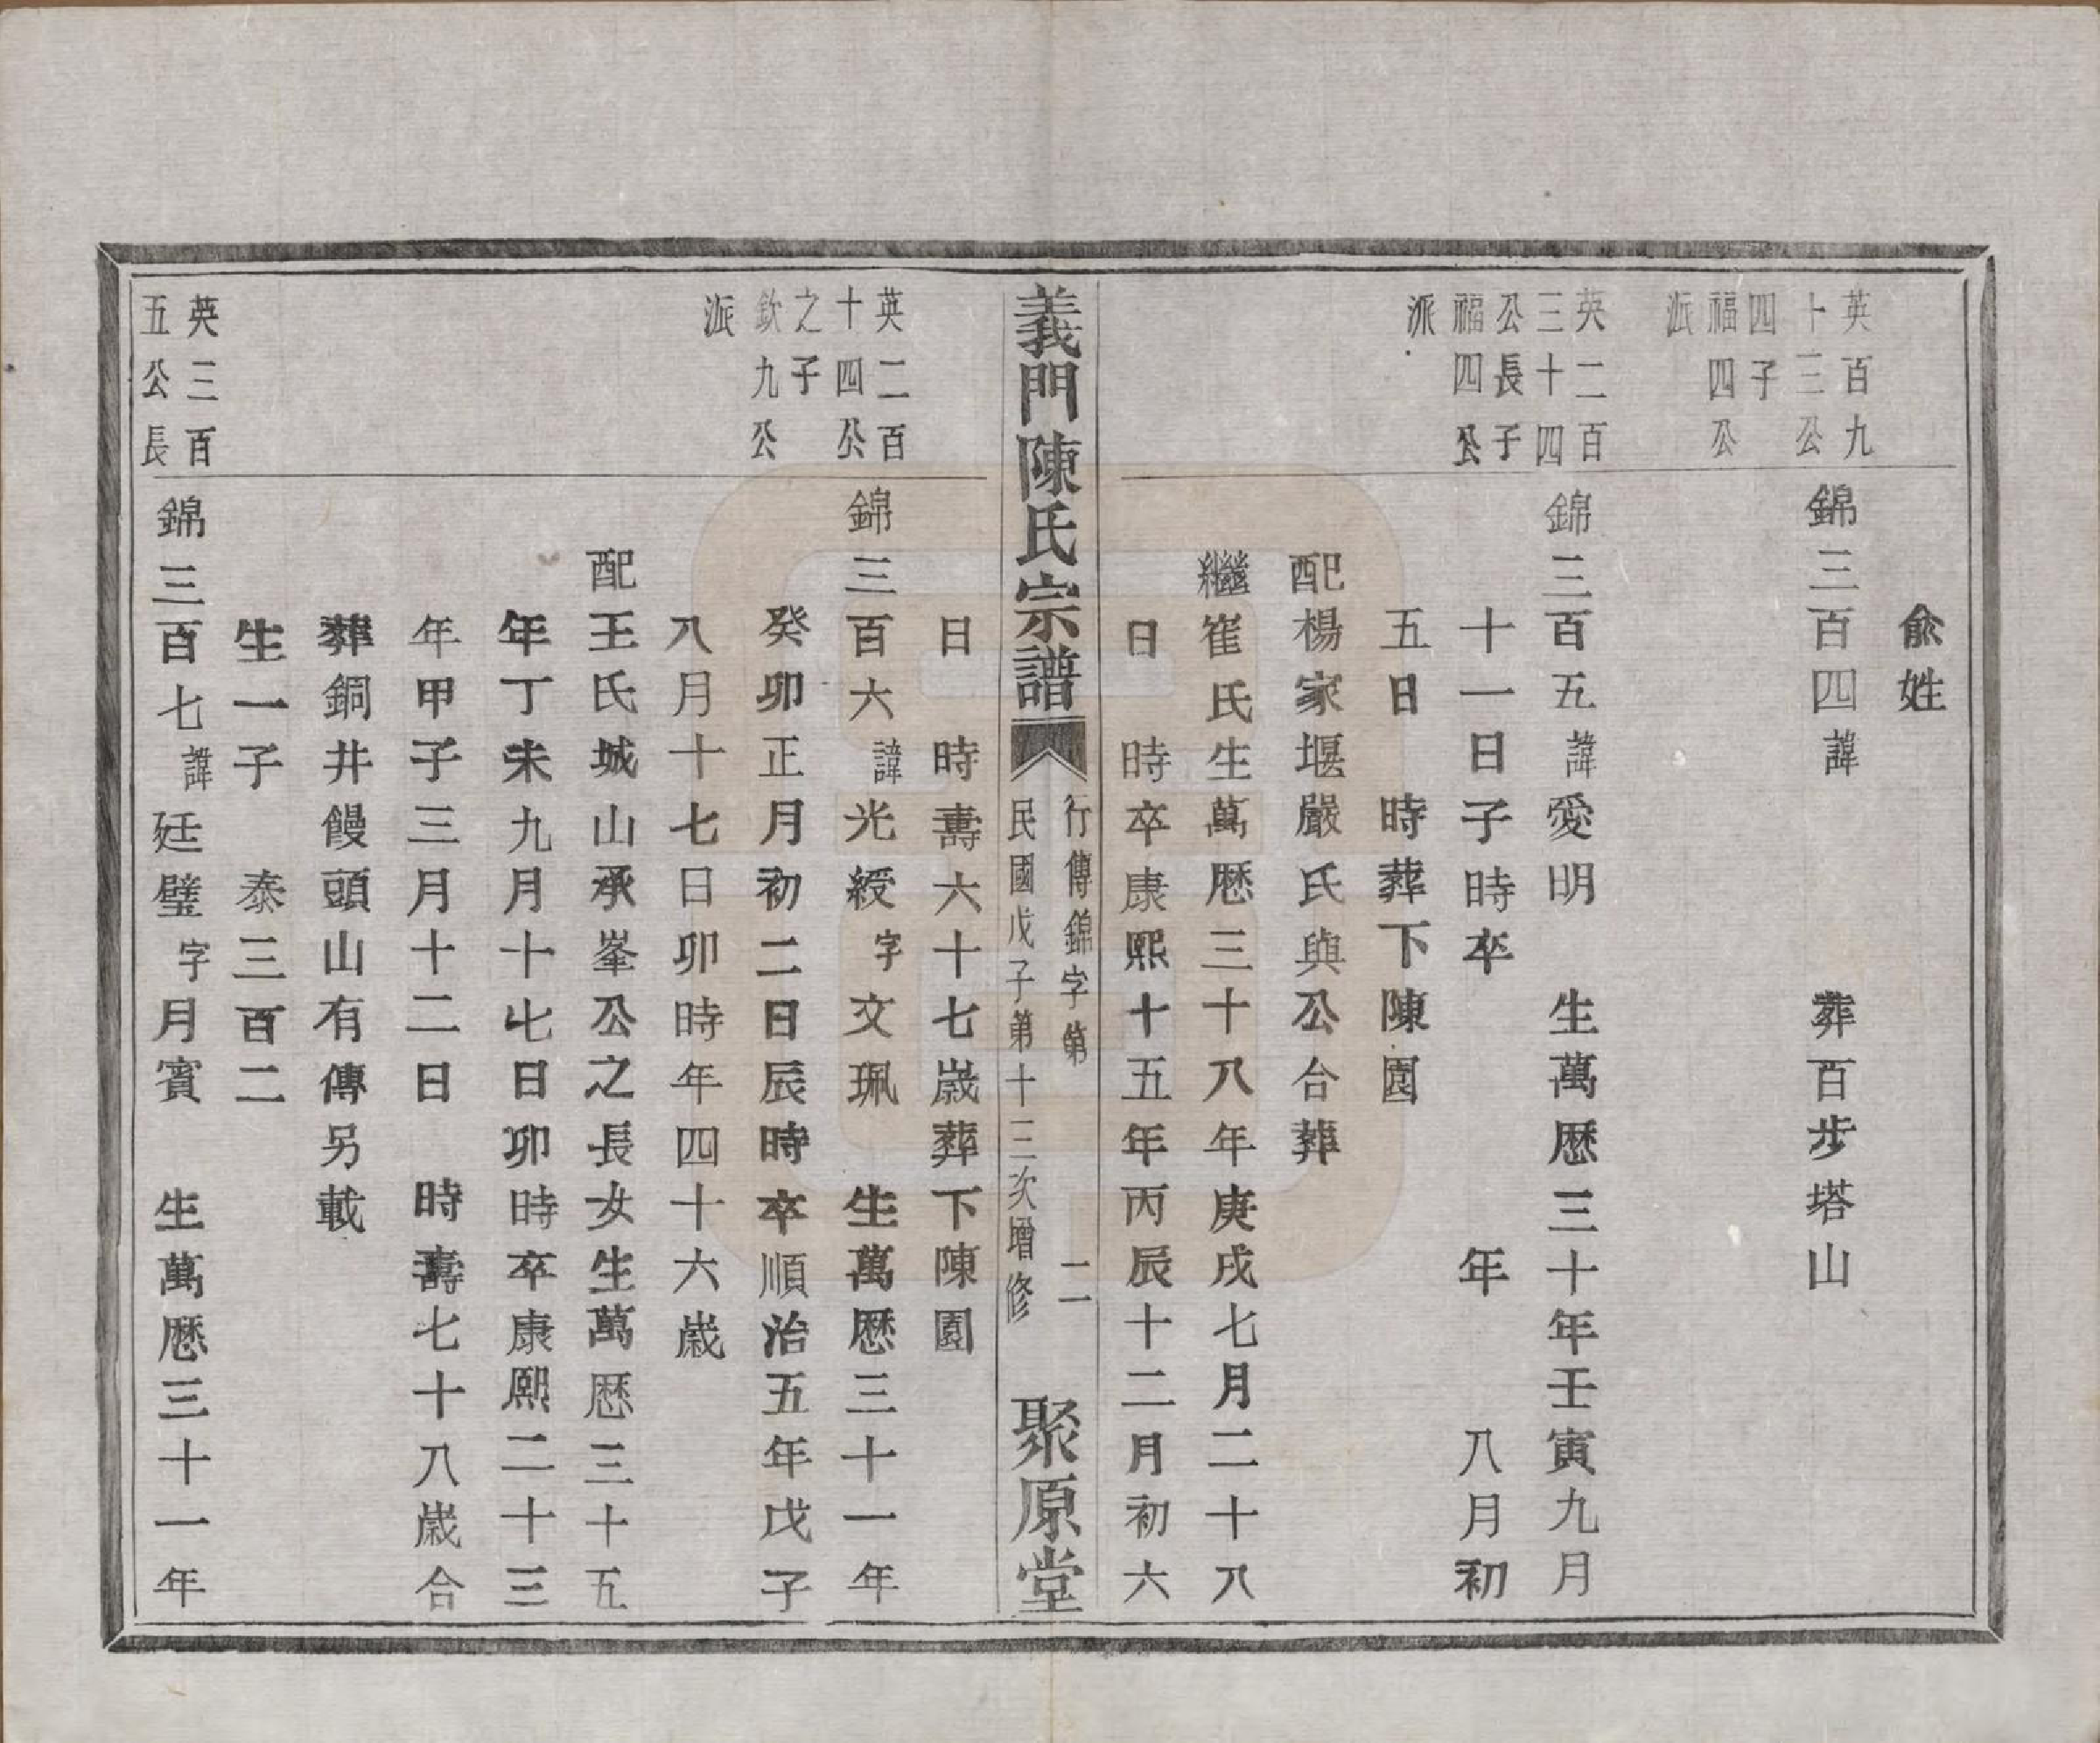 俞姓
英百九
十三公
四子
福四公
派
錦三百四諱　葬百步塔山
英二百
三十四
公長子
福四公
派
錦三百五諱愛明　生萬歷三十年壬寅九月
十一日子時卒　年　八月初
五日　時葬下陳園
配楊家堰嚴氏與公合葬
繼崔氏生萬歷三十八年庚戌七月二十八
日　時卒康熙十五年丙辰十二月初六
義門陳氏宗譜
行傳錦字第　二
民國戊子第十三次增修
聚原堂
日　時壽六十七歲葬下陳園
英二百
十四公
之子
欽九公
派
錦三百六諱光綬字文珮　生萬歷三十一年
癸卯正月初二日辰時卒順治五年戊子
八月十七日卯時年四十六歲
配王氏城山承峯公之長女生萬歷三十五
年丁未九月十七日卯時卒康熙二十三
年甲子三月十二日　時壽七十八歲合
葬銅井饅頭山有傳另載
生一子　泰三百二
英三百
五公長
錦三百七諱廷璧字月賓　生萬歷三十一年